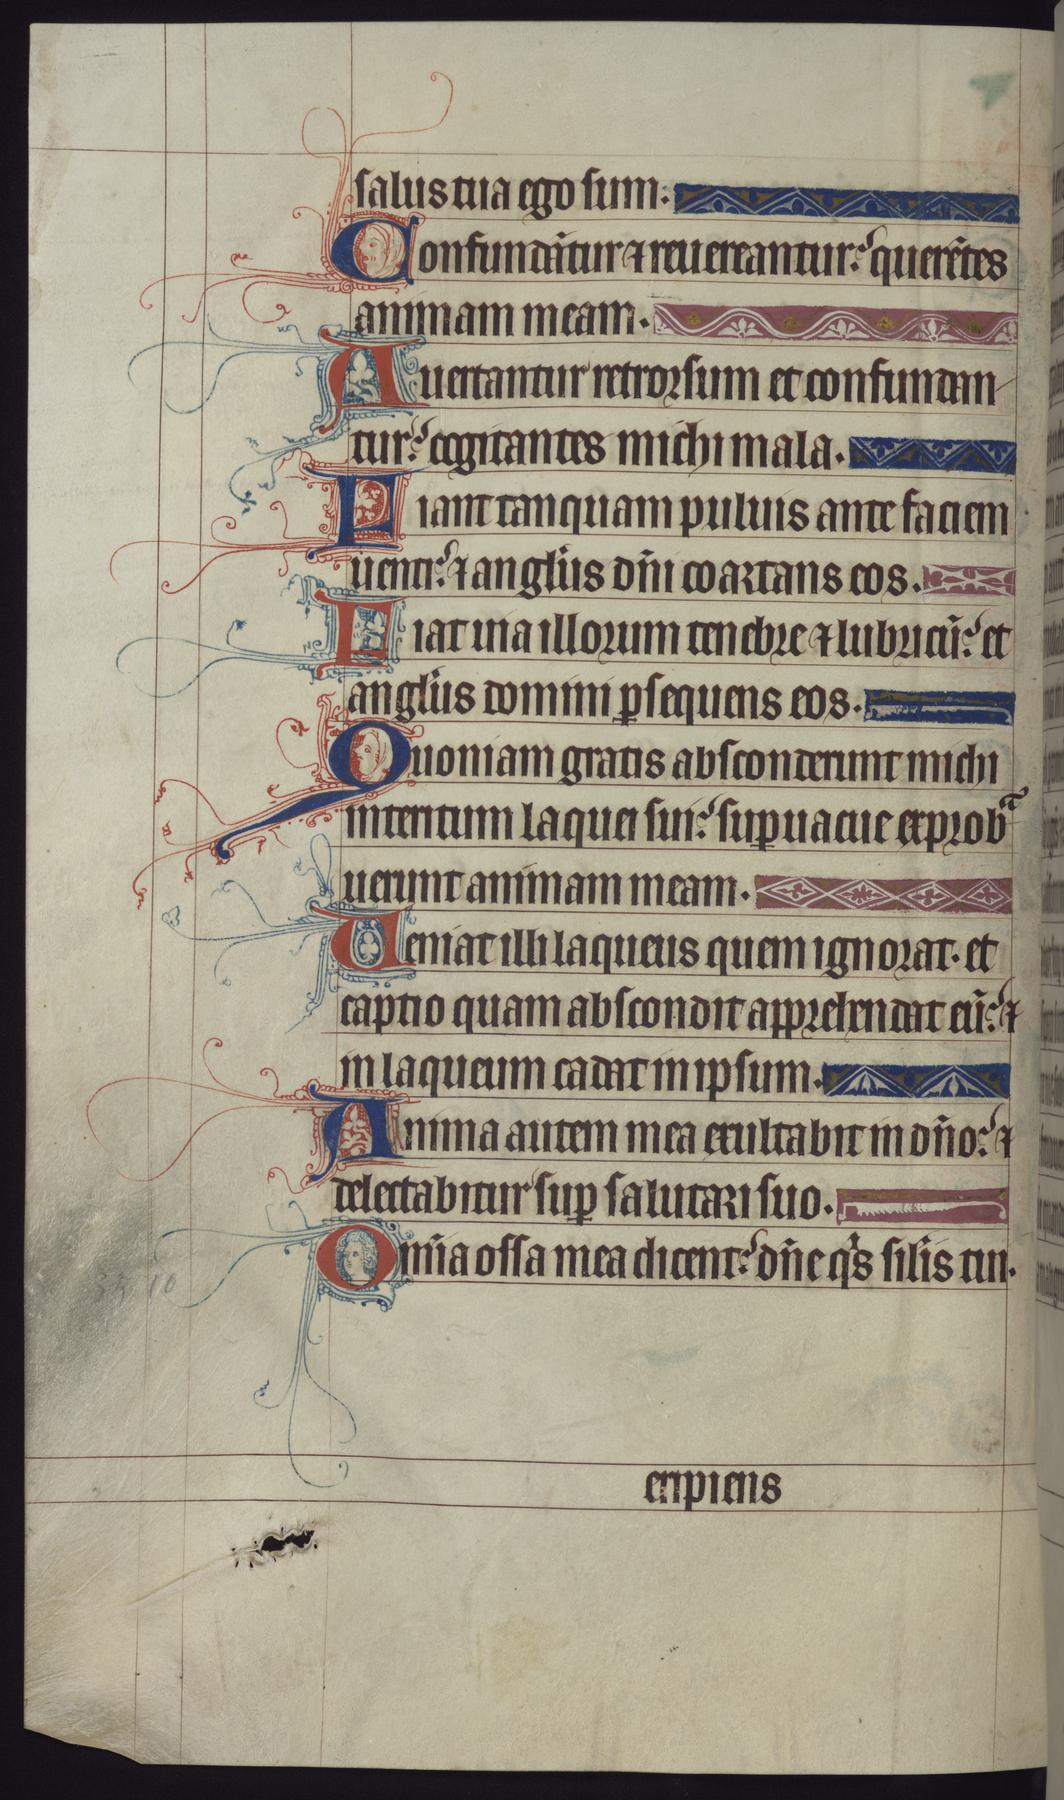 salus tua ego sum:
Confundãtur ⁊ reuereantur: querẽtes
animam meam.
Auertantur retrorsum et confundan-
tur: cogitantes michi mala.
Fiant tanquam puluis ante faciem
uenti: ⁊ anglus dñi coartans eos.
Fiat uia illorum tenebre ⁊ lubricũ: et
anglus domini ꝑsequens eos.
Quoniam gratis absconderunt michi
interitum laquei sui: suꝑuacue exprobᵃ
uerunt animam meam.
Ueniat illi laqueus quem ignorat. et
captio quam abscondit apprehendat eũ: ⁊
in laqueum cadat in ipsum.
Anima autem mea exultabit in dño: ⁊
delectabitur suꝑ salutari suo.
Omĩa ossa mea dicent: dñe qⁱs silis tui.
eripiens